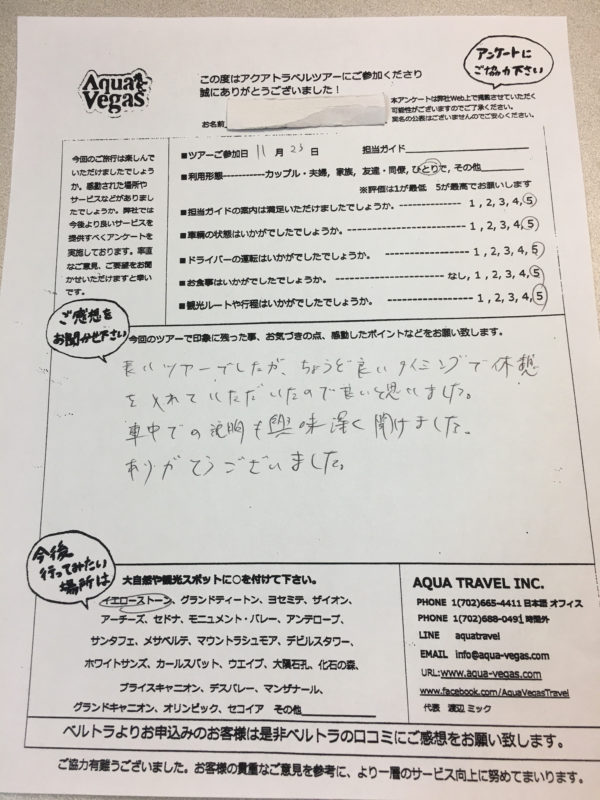 Aqua Vegas
この度はアクアトラベルツアーにご参加くださり
誠にありがとうございました！
アンケートに
ご協力下さい
本アンケートは弊社Web上で掲載させていただく
可能性がございますのでご了承ください。
実名の公表はございませんのでご安心ください。
お名前
今回のご旅行は楽しんで
いただけましたでしょう
か。感動された場所や
サービスなどがありまし
たでしょうか。弊社では
今後より良いサービスを
提供すべくアンケートを
実施しております。率直
なご意見、ご要望をお聞
かせいただけますと幸い
です。
■ツアーご参加日 11 月 23 日 担当ガイド
■利用形態-----------カップル・夫婦, 家族, 友達・同僚, ひとりで, その他
※評価は1が最低 5が最高でお願いします
■担当ガイドの案内は満足いただけましたでしょうか。 ---------- 1 , 2, 3, 4, 5
■車輌の状態はいかがでしたでしょうか。 ------------------- 1 , 2, 3, 4, 5
■ドライバーの運転はいかがでしたでしょうか。 -------------- 1 , 2, 3, 4, 5
■お食事はいかがでしたでしょうか。 ---------------- なし, 1, 2, 3, 4, 5
■観光ルートや行程はいかがでしたでしょうか。 ---------------- 1 , 2, 3, 4, 5
ご感想を
お聞かせ下さい
今回のツアーで印象に残った事、お気づきの点、感動したポイントなどをお願い致します。
長いツアーでしたが、ちょうど良いタイミングで休憩
を入れていただいたので良いと思いました。
車中での説明も興味深く聞けました。
ありがとうございました。
今後
行ってみたい
場所は
大自然や観光スポットに○を付けて下さい。
イエローストーン、グランドティートン、ヨセミテ、ザイオン、
アーチーズ、セドナ、モニュメント・バレー、アンテロープ、
サンタフェ、メサベルデ、マウントラシュモア、デビルスタワー、
ホワイトサンズ、カールスバット、ウエイブ、大隕石孔、化石の森、
ブライスキャニオン、デスバレー、マンザナール、
グランドキャニオン、オリンピック、セコイア その他
AQUA TRAVEL INC.
PHONE 1(702)665-4411 日本語 オフィス
PHONE 1(702)688-0491 時間外
LINE aquatravel
EMAIL info@aqua-vegas.com
URL:www.aqua-vegas.com
www.facebook.com/AquaVegasTravel
代表 渡辺 ミック
ベルトラよりお申込みのお客様は是非ベルトラの口コミにご感想をお願い致します。
ご協力有難うございました。お客様の貴重なご意見を参考に、より一層のサービス向上に努めてまいります。